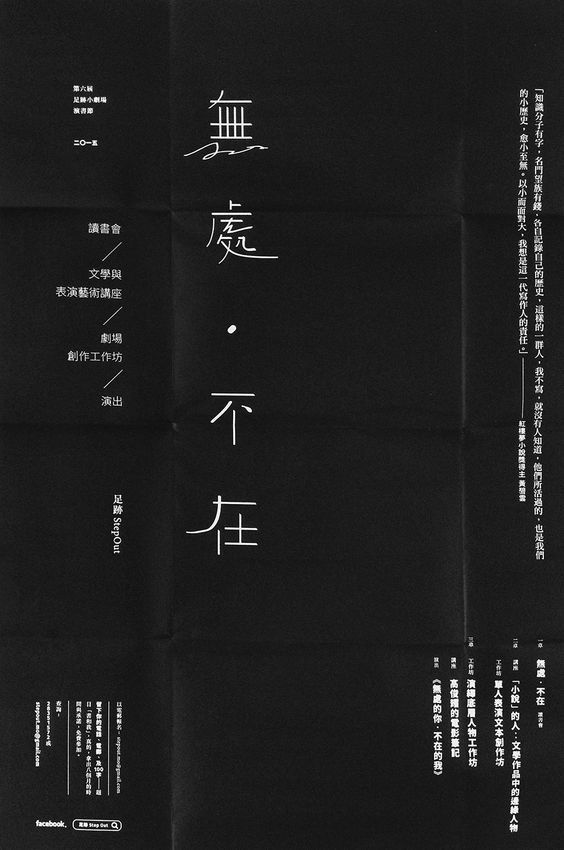 「知識分子有字，名門望族有錢，各自記錄自己的歷史，這樣的一群人，我不寫，就沒有人知道，他們所活過的，也是我們
的小歷史，愈小至無。以小而面對大，我想是這一代寫作人的責任。」——紅樓夢小說獎得主 黃碧雲
無處・不在
第六屆
足跡小劇場
演書節
二〇一五
讀書會
／
文學與
表演藝術講座
／
劇場
創作工作坊
／
演出
足跡 StepOut
一章 無處・不在 讀書會
二章 講座 「小說」的人：文學作品中的邊緣人物
工作坊 單人表演文本創作坊
三章 工作坊 演繹底層人物工作坊
講座 高俊耀的電影筆記
演出 《無處的你・不在的我》
以電郵報名－stepout.mo@gmail.com
留下你的姓名、電郵、及100字——題
目「書和我」，真的，拿出八個月的時
間與承諾，免費參加。
查詢－
28351572 或
stepout.mo@gmail.com
facebook.
足跡 Step Out